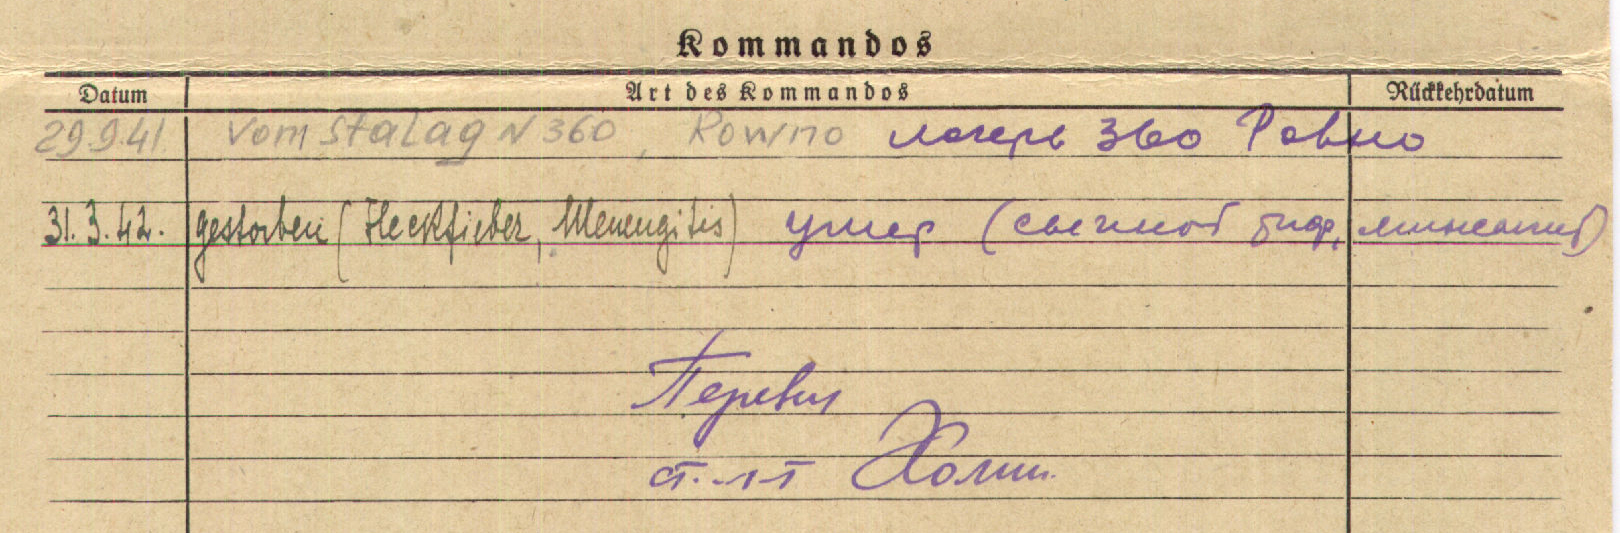 Kommandos
Datum Art des Kommandos Rückkehrdatum
29.9.41. vom Stalag N 360, Rowno лагерь 360 Ровно
31.3.42. gestorben (Fleckfieber, Menengitis) умер (сыпной тиф, мингит)
Перевел
ст. л-т